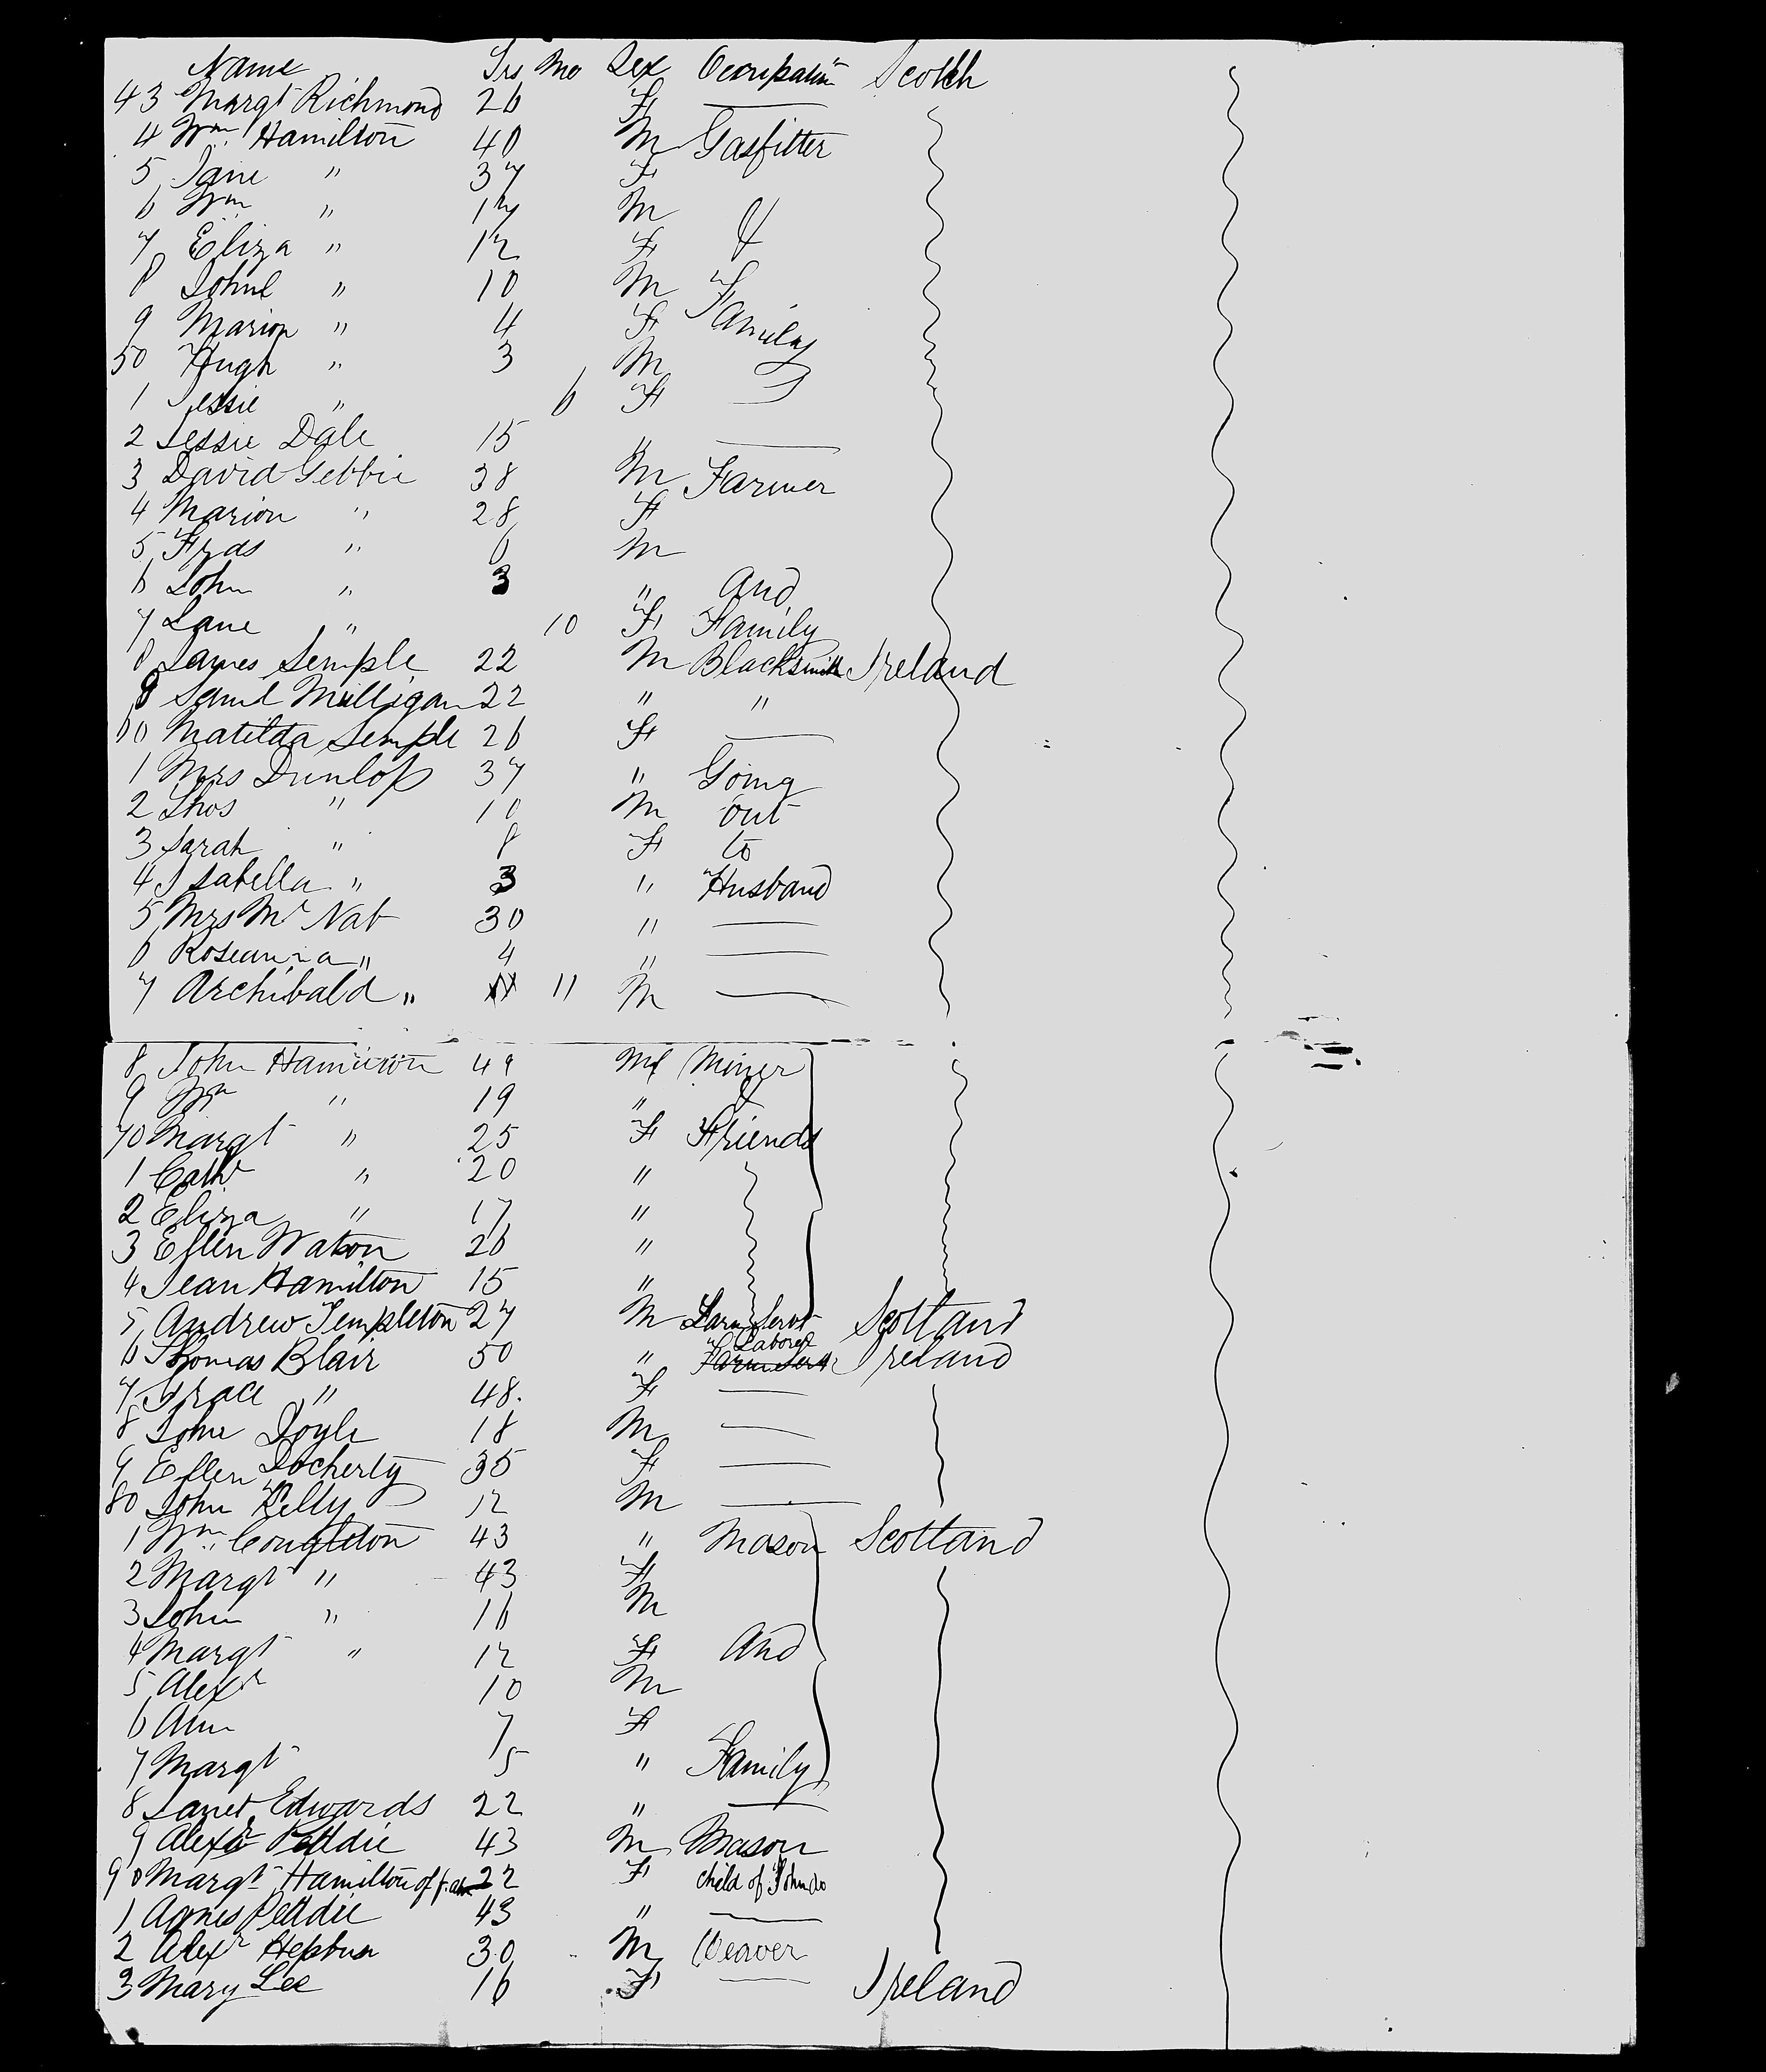 Name Yrs Mo Sex Occupation Scotch
43 Margt Richmond 26 F
4 Wm Hamilton 40 M Gasfitter
5 Jane " 37 F
6 Wm " 14 M
7 Eliza " 12 F &
8 John " 10 M Family
9 Marion " 4 F
50 Hugh " 3 M
1 Jessie " 6 F
2 Jessie Dale 15 "
3 David Gebbie 38 M Farmer
4 Marion " 28 F
5 " 6 M
6 John " 3 " And
7 Jane " 10 F Family
8 James Semple 22 M Blacksmith Ireland
9 Saml Milligan 22 " "
60 Matilda Semple 26 F
1 Mrs Dunlop 37 " Going
2 Thos " 10 M out
3 Sarah " 8 F to
4 Isabella " 3 " Husband
5 Mrs Mc Nab 30 "
6 Roseanna " 4 "
7 Archibald " 11 M
8 John Hamilton 49 M Miner
9 Wm " 19 " &
70 Margt " 25 F Friends
1 Cath " 20 "
2 Eliza " 17 "
3 Ellen Watson 26 "
4 Jean Hamilton 15 "
5 Andrew Templeton 27 M Farm Servt Scotland
6 Thomas Blair 50 " Laborer Farm Servt Ireland
7 Grace " 48 F
8 John Doyle 18 M
9 Ellen Docherty 35 F
80 John Kelly 12 M
1 Wm Congleton 43 " Mason Scotland
2 Margt " 43 F
3 John " 16 M
4 Margt " 12 F And
5 Alexr 10 M
6 Ann 7 F
7 Margt 5 " Family
8 Janet Edwards 22 "
9 Alexr Peddie 43 M Mason
90 Margt Hamilton of 22 F child of John do
1 Agnes Peddie 43 "
2 Alexr Hepburn 30 M Weaver
3 Mary Lee 16 F Ireland